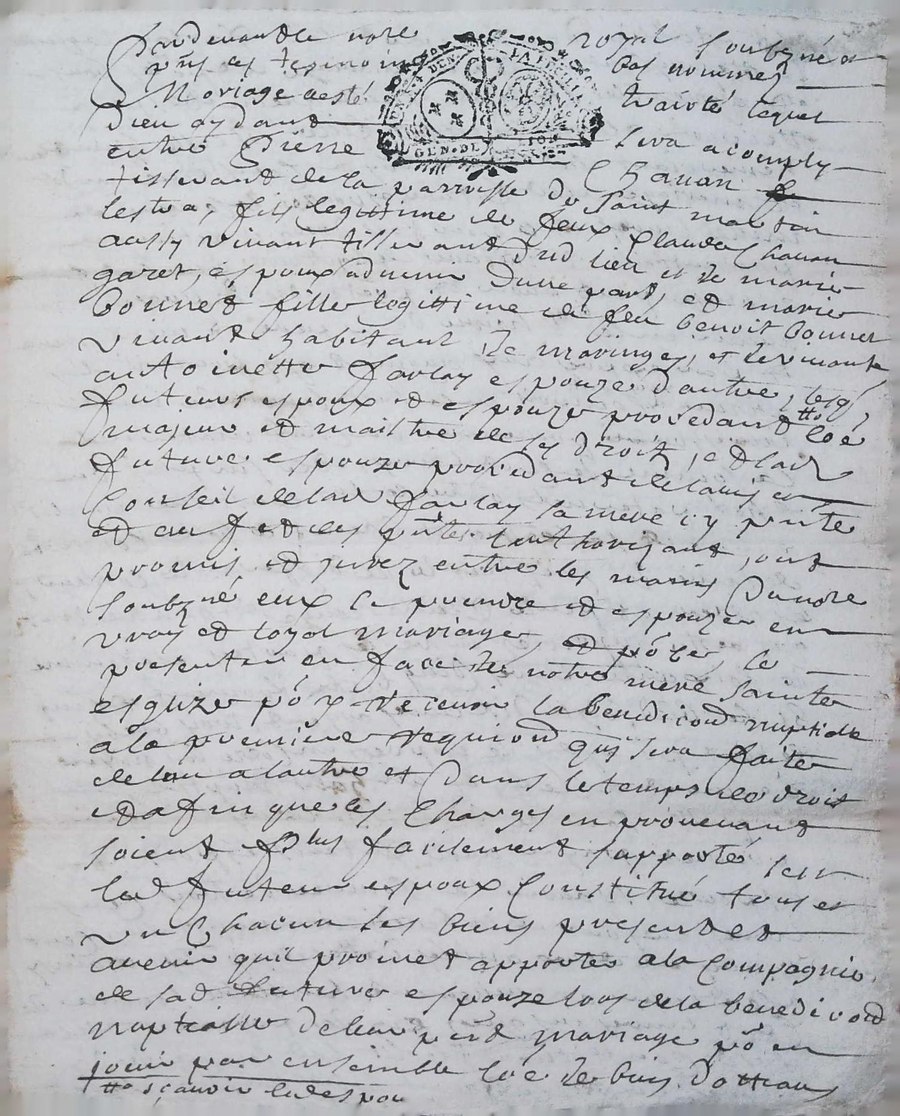 Pardevant le notre royal soubzné et
pnts es tesmoins bas nommes
Mariage a esté traité lequel
Dieu aydant sera acomply
entre Pierre Chavan
tisserant de la parroisse de Saint martin
lestra, fils legittime de feux Claude Chavan
aussy vivant tisserant dud lieu et de marie
garet, espoux advenir d'une part, et marie
Bonnet fille legittime de feu benoit bonnet
vivant habitant de maringes, et de vivante
antoinette Farlay espouze d'autre, lesqs
futurs espoux et espouze procedant sçe
majeur et maistre de ses droits, et lad
future espouze procedant de l'avis et
Conseil de lad Farlay sa mere icy pnte
et des pntes l'authorizant, ont
promis et jurez entre les mains Dunotre
soubzné eux se prendre et espouzer en
vray et loyal mariage, et po ce, se
presenter en face de notre mere sainte
esglize po y recevoir la benediction nuptialle
a la premiere requion qui sera faite
de lun a lautre et Dans le temps de droit
et afin que les Charges en provenant
soient plus facilement supporté
led futeur espoux Constitué tous et
un Chacun ses biens presents et
avenir quil promet apporter a la Compagnie
de sad future espouze lors de la benediction
nuptialle de leur pnd mariage po en
jouir par ensemble de biens dottaux
sçavoir led espou